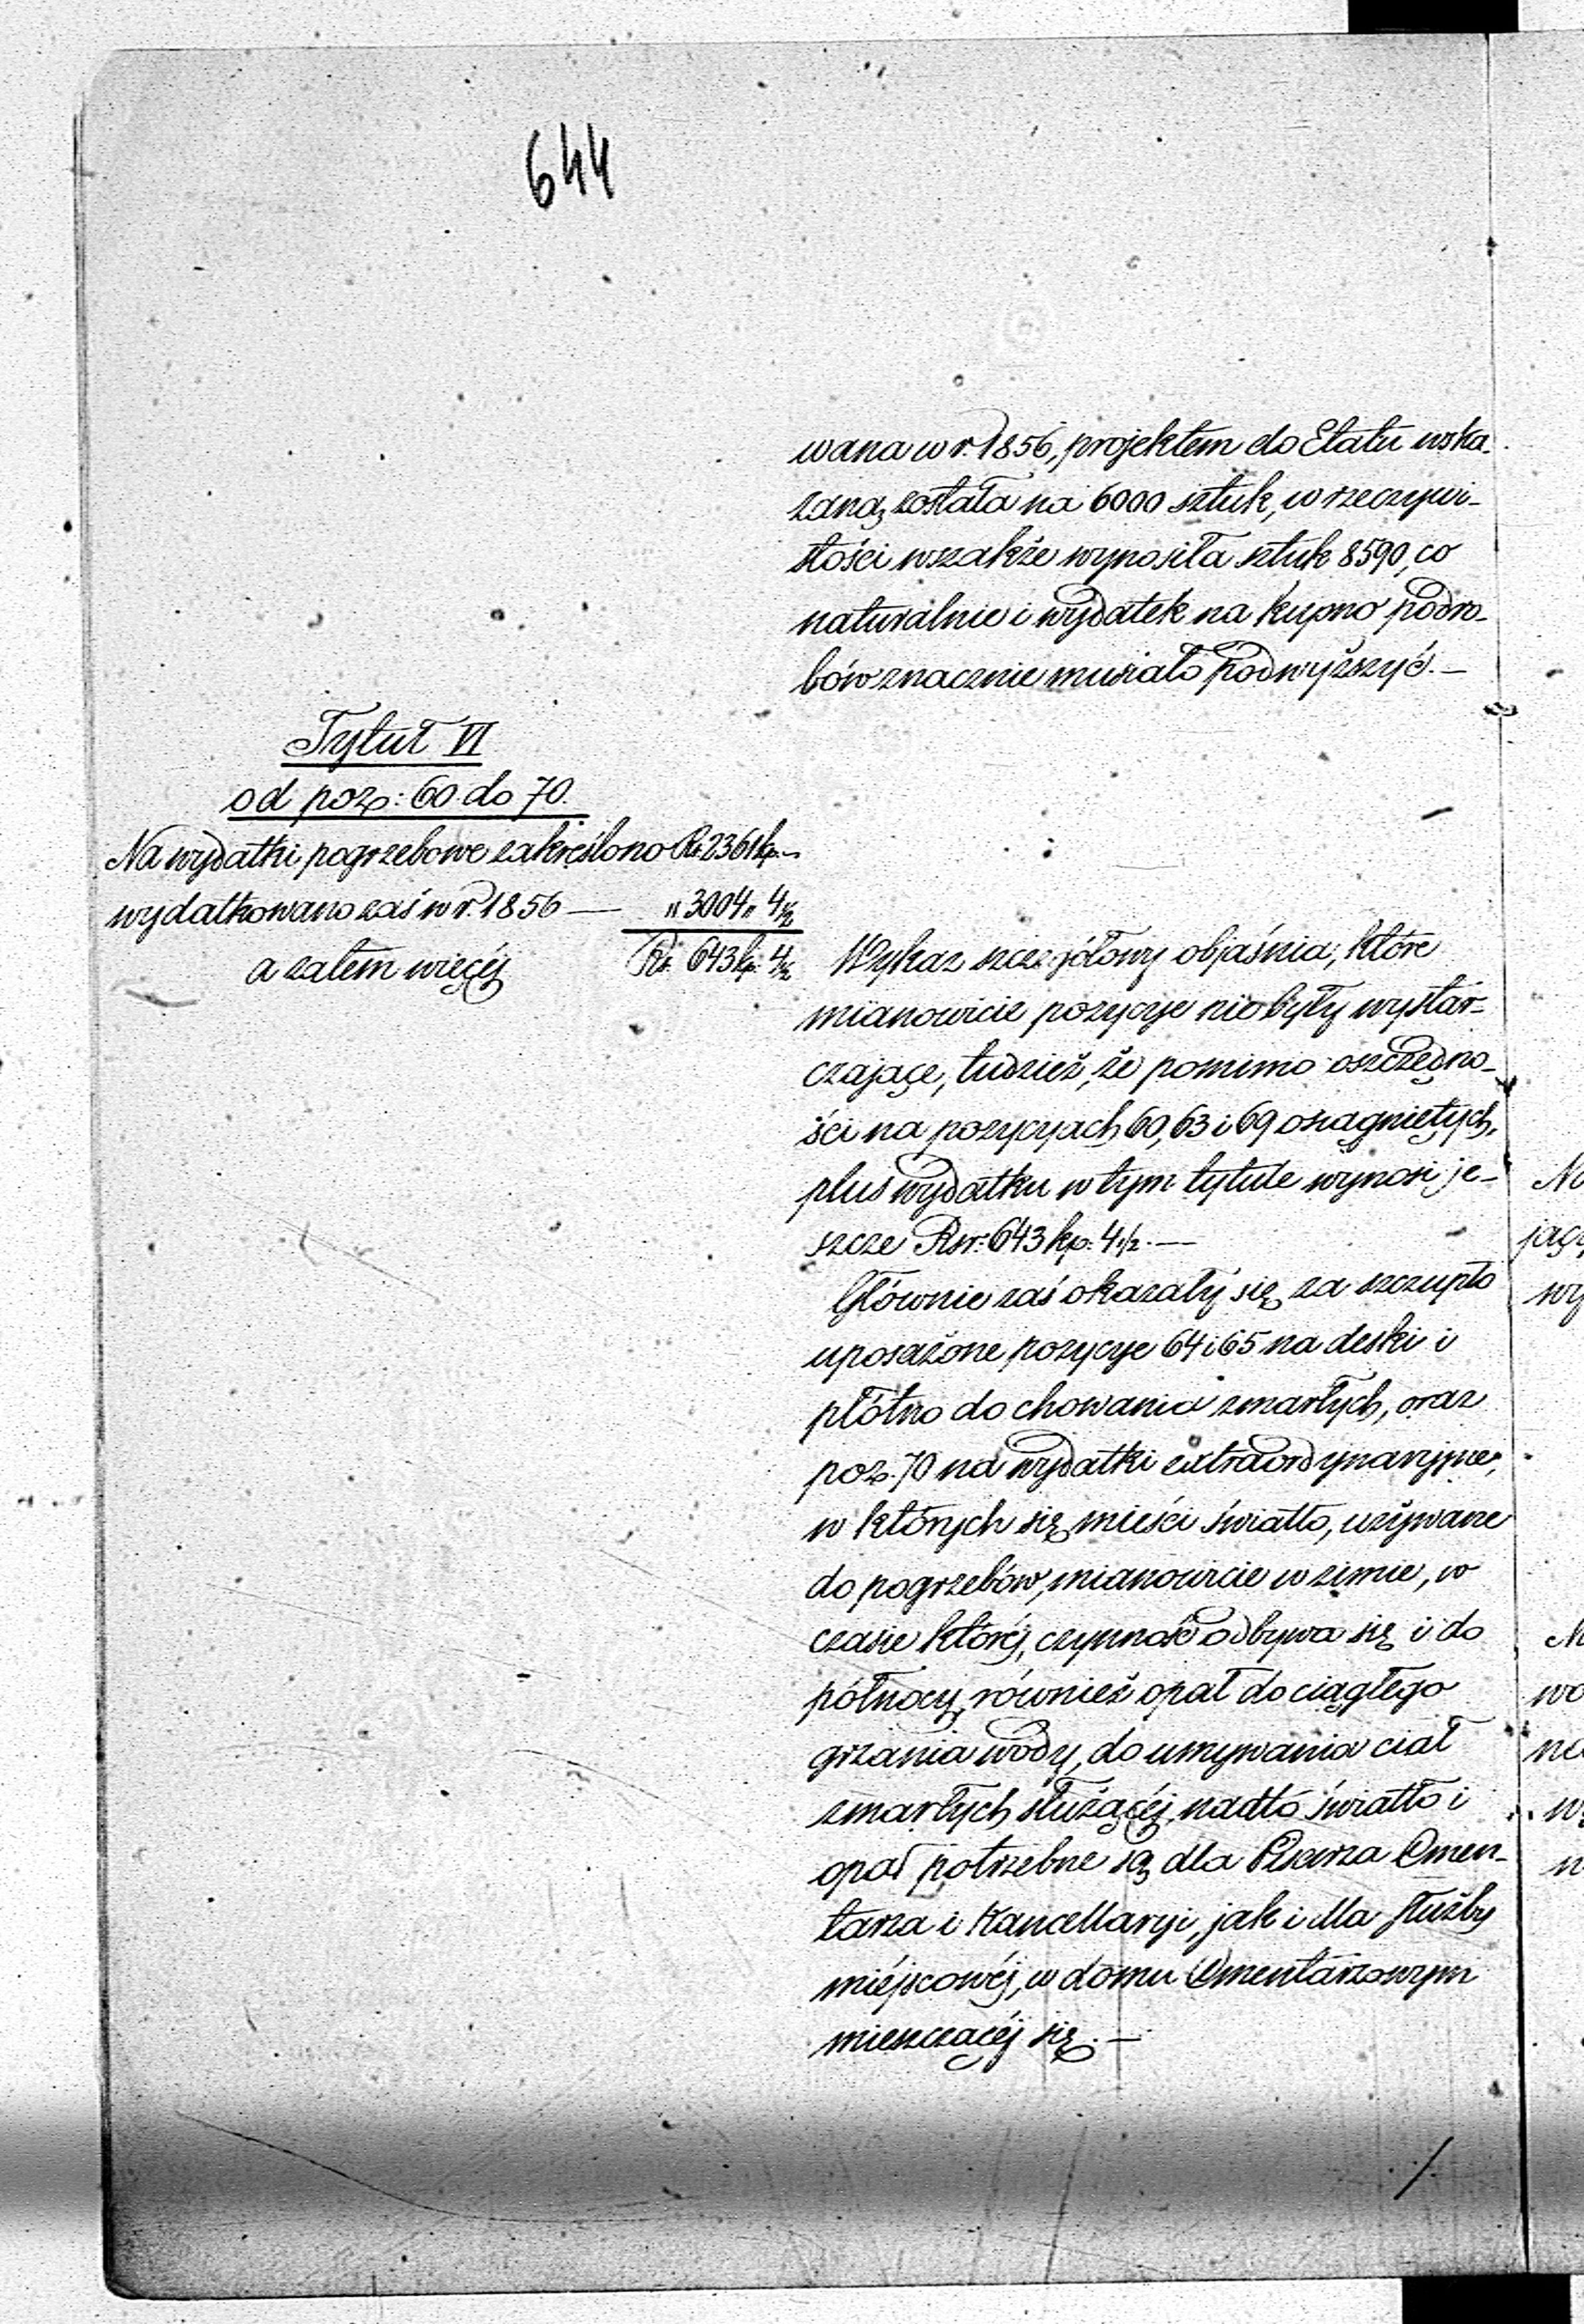 644
wana w r. 1856, projektem do Etatu wska-
zaną została na 6000 sztuk, w rzeczywi-
stości wszakże wynosiła sztuk 8590, co
naturalnie i wydatek na kupno podro-
bów znacznie musiało podwyższyć.—
Tytuł VI
od poz: 60 do 70.
Na wydatki pogrzebowe zakreślono Rs. 2361 kp. —
wydatkowano zaś w r. 1856 — " 3004 " 4½
a zatem więcéj Rs. 643 kp. 4½
Wykaz szczegółowy objaśnia, które
mianowicie pozycye nie były wystar-
czające, tudzież, że pomimo oszczędno-
ści na pozycyach 60, 63 i 69 osiągniętych,
plus wydatku w tym tytule wynosi je-
szcze Rsr: 643 kp: 4½.—
Głównie zaś okazały się za szczupło
uposażone pozycye 64 i 65 na deski i
płótno do chowania zmarłych, oraz
poz. 70 na wydatki extraordynaryjne,
w których się mieści światło, używane
do pogrzebów, mianowicie w zimie, w
czasie któréj, czynność odbywa się i do
północy, również opał do ciągłego
grzania wody, do umywania ciał
zmarłych służącéj, nadto światło i
opał potrzebne są dla Pisarza Cmen-
tarza i Kancellaryi, jak i dla służby
miéjscowéj, w domu Cmentarzowym
mieszczącéj się.—